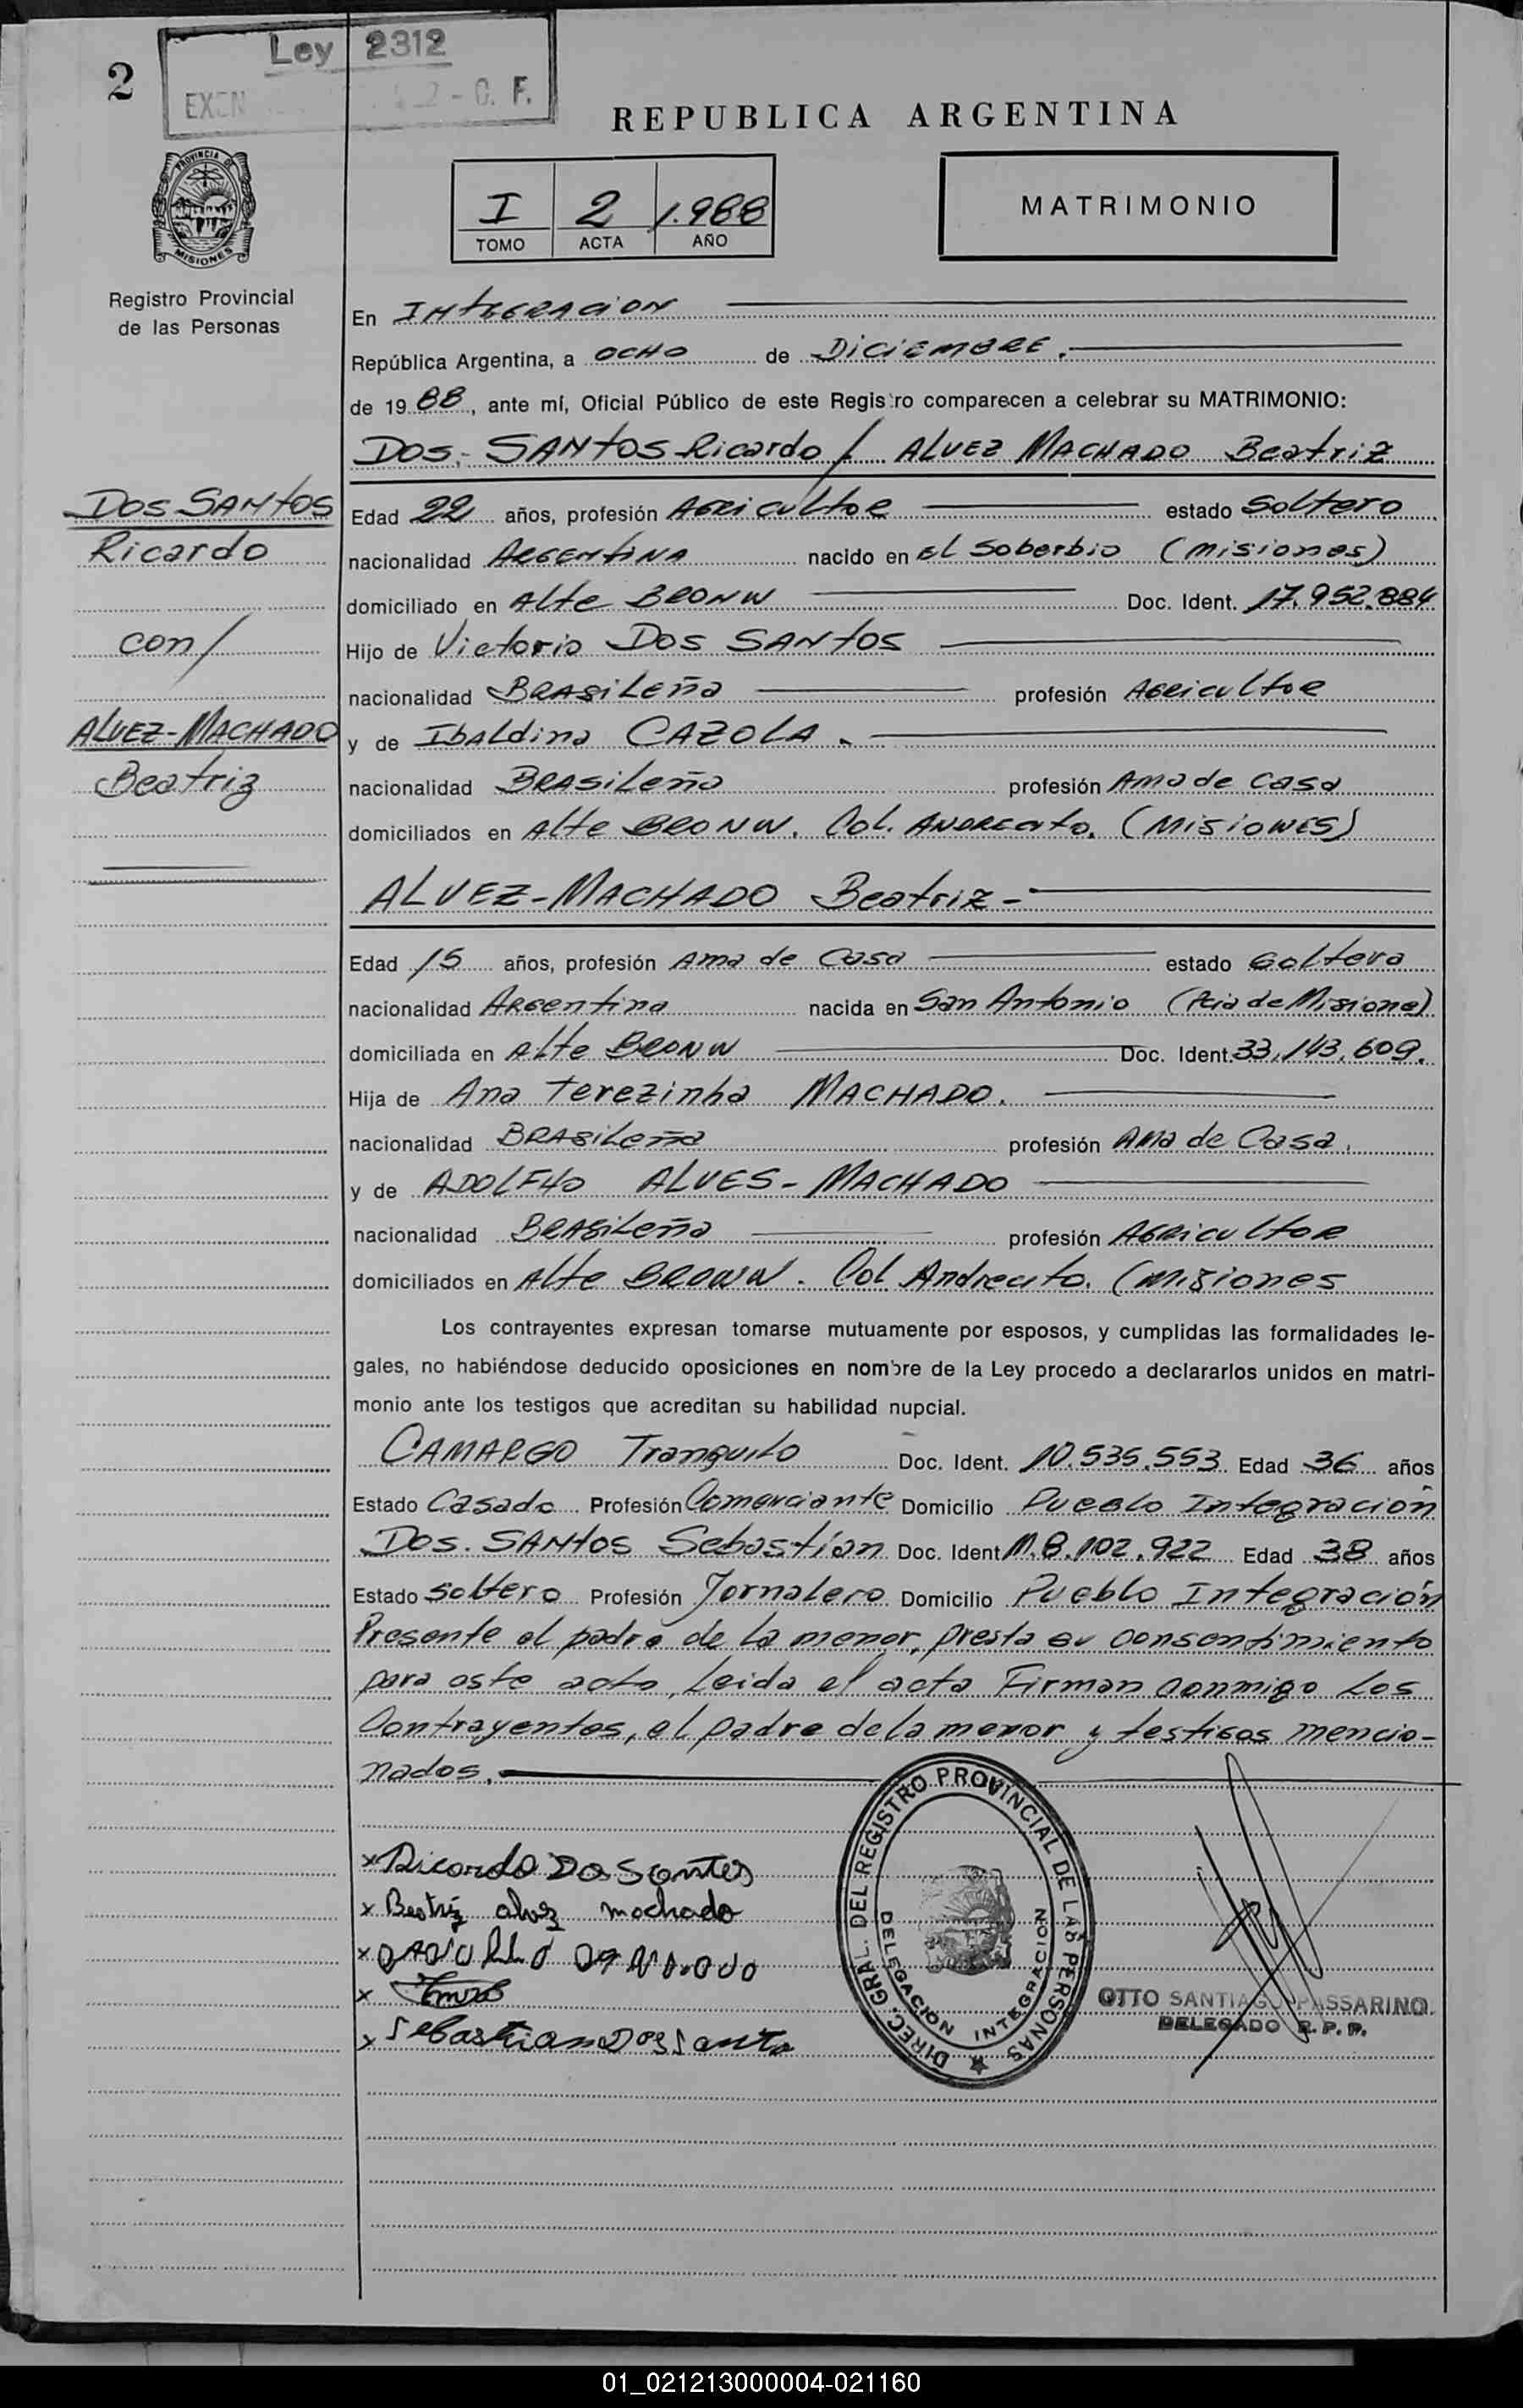 2
Ley 2312
EXEN - O. F.
REPUBLICA ARGENTINA
I 2 1.988
TOMO ACTA AÑO
MATRIMONIO
PROVINCIA DE
MISIONES
Registro Provincial
de las Personas
En INtEGRACiON
República Argentina, a OCHO de DiCiEMBRE.
de 1988, ante mí, Oficial Público de este Registro comparecen a celebrar su MATRIMONIO:
DOS.- SANtOS Ricardo / ALVEZ MACHADO Beatriz
DOS SANtOS
Ricardo
con/
ALVEZ-MACHADO
Beatriz
Edad 22 años, profesión AGRicultor estado Soltero
nacionalidad ARGENtiNA nacido en El Soberbio (Misiones)
domiciliado en Alte BRONW Doc. Ident. 17.952.884
Hijo de Victorio DOS SANtOS
nacionalidad BRASiLeña profesión AGRicultor
y de IbALdina CAZOLA.-
nacionalidad BRASiLeña profesión Ama de Casa
domiciliados en Alte BRONW. Col. ANDREcito. (MiSiONES)
ALVEZ-MACHADO Beatriz-
Edad 15 años, profesión Ama de Casa estado Soltera
nacionalidad ARGentina nacida en San Antonio (Pcia de Misione)
domiciliada en Alte BRONW Doc. Ident. 33.143.609.
Hija de Ana Terezinha MACHADO.
nacionalidad BRASiLeña profesión Ama de Casa.
y de ADOLFHO ALVES-MACHADO
nacionalidad BRASiLeña profesión AGRicultor
domiciliados en Alte BROWN. Col Andrecito. (Misiones
Los contrayentes expresan tomarse mutuamente por esposos, y cumplidas las formalidades le-
gales, no habiéndose deducido oposiciones en nombre de la Ley procedo a declararlos unidos en matri-
monio ante los testigos que acreditan su habilidad nupcial.
CAMARGO Tranquilo Doc. Ident. 10.535.553 Edad 36 años
Estado Casado Profesión Comerciante Domicilio Pueblo Integración
DOS. SANtOS Sebastián Doc. Ident M.8.102.922 Edad 38 años
Estado Soltero Profesión Jornalero Domicilio Pueblo Integración
Presente el padre de la menor, presta su consentimiento
para este acto, Leida el acta Firman conmigo Los
Contrayentes, el padre de la menor y testigos mencio-
nados.
x Ricardo Dos Santos
x Beatriz alvez machado
x
x
x Sebastian Dos Santo
DIREC. GRAL. DEL REGISTRO PROVINCIAL DE LAS PERSONAS
DELEGACION INTEGRACION
OTTO SANTIAGO PASSARINO
DELEGADO R. P. P.
01_021213000004-021160